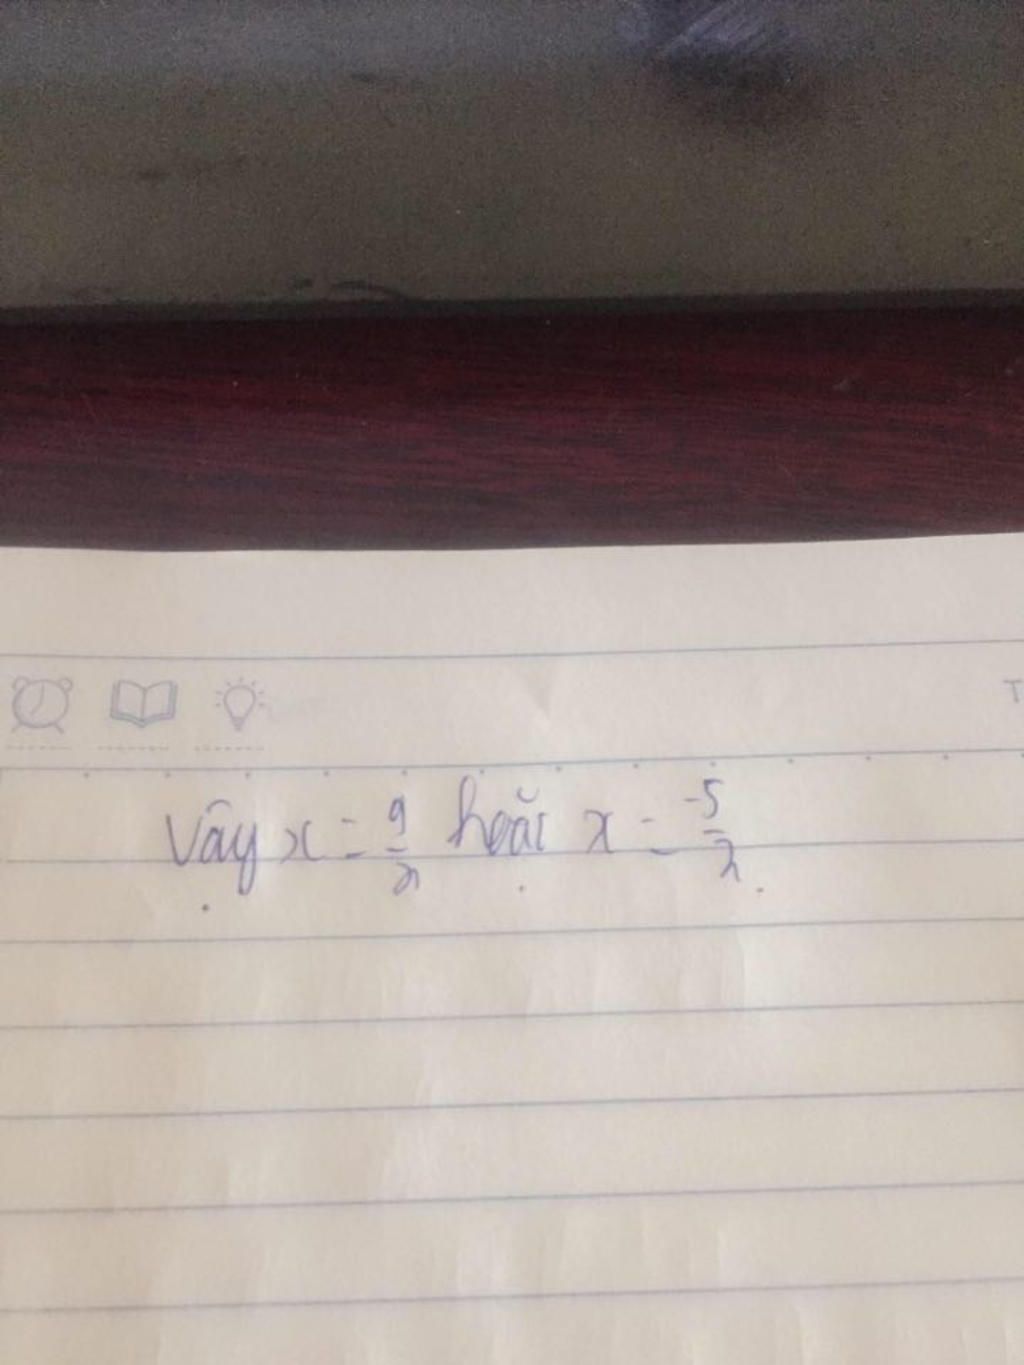 T
Vậy x = 9/2 hoặc x = -5/2.